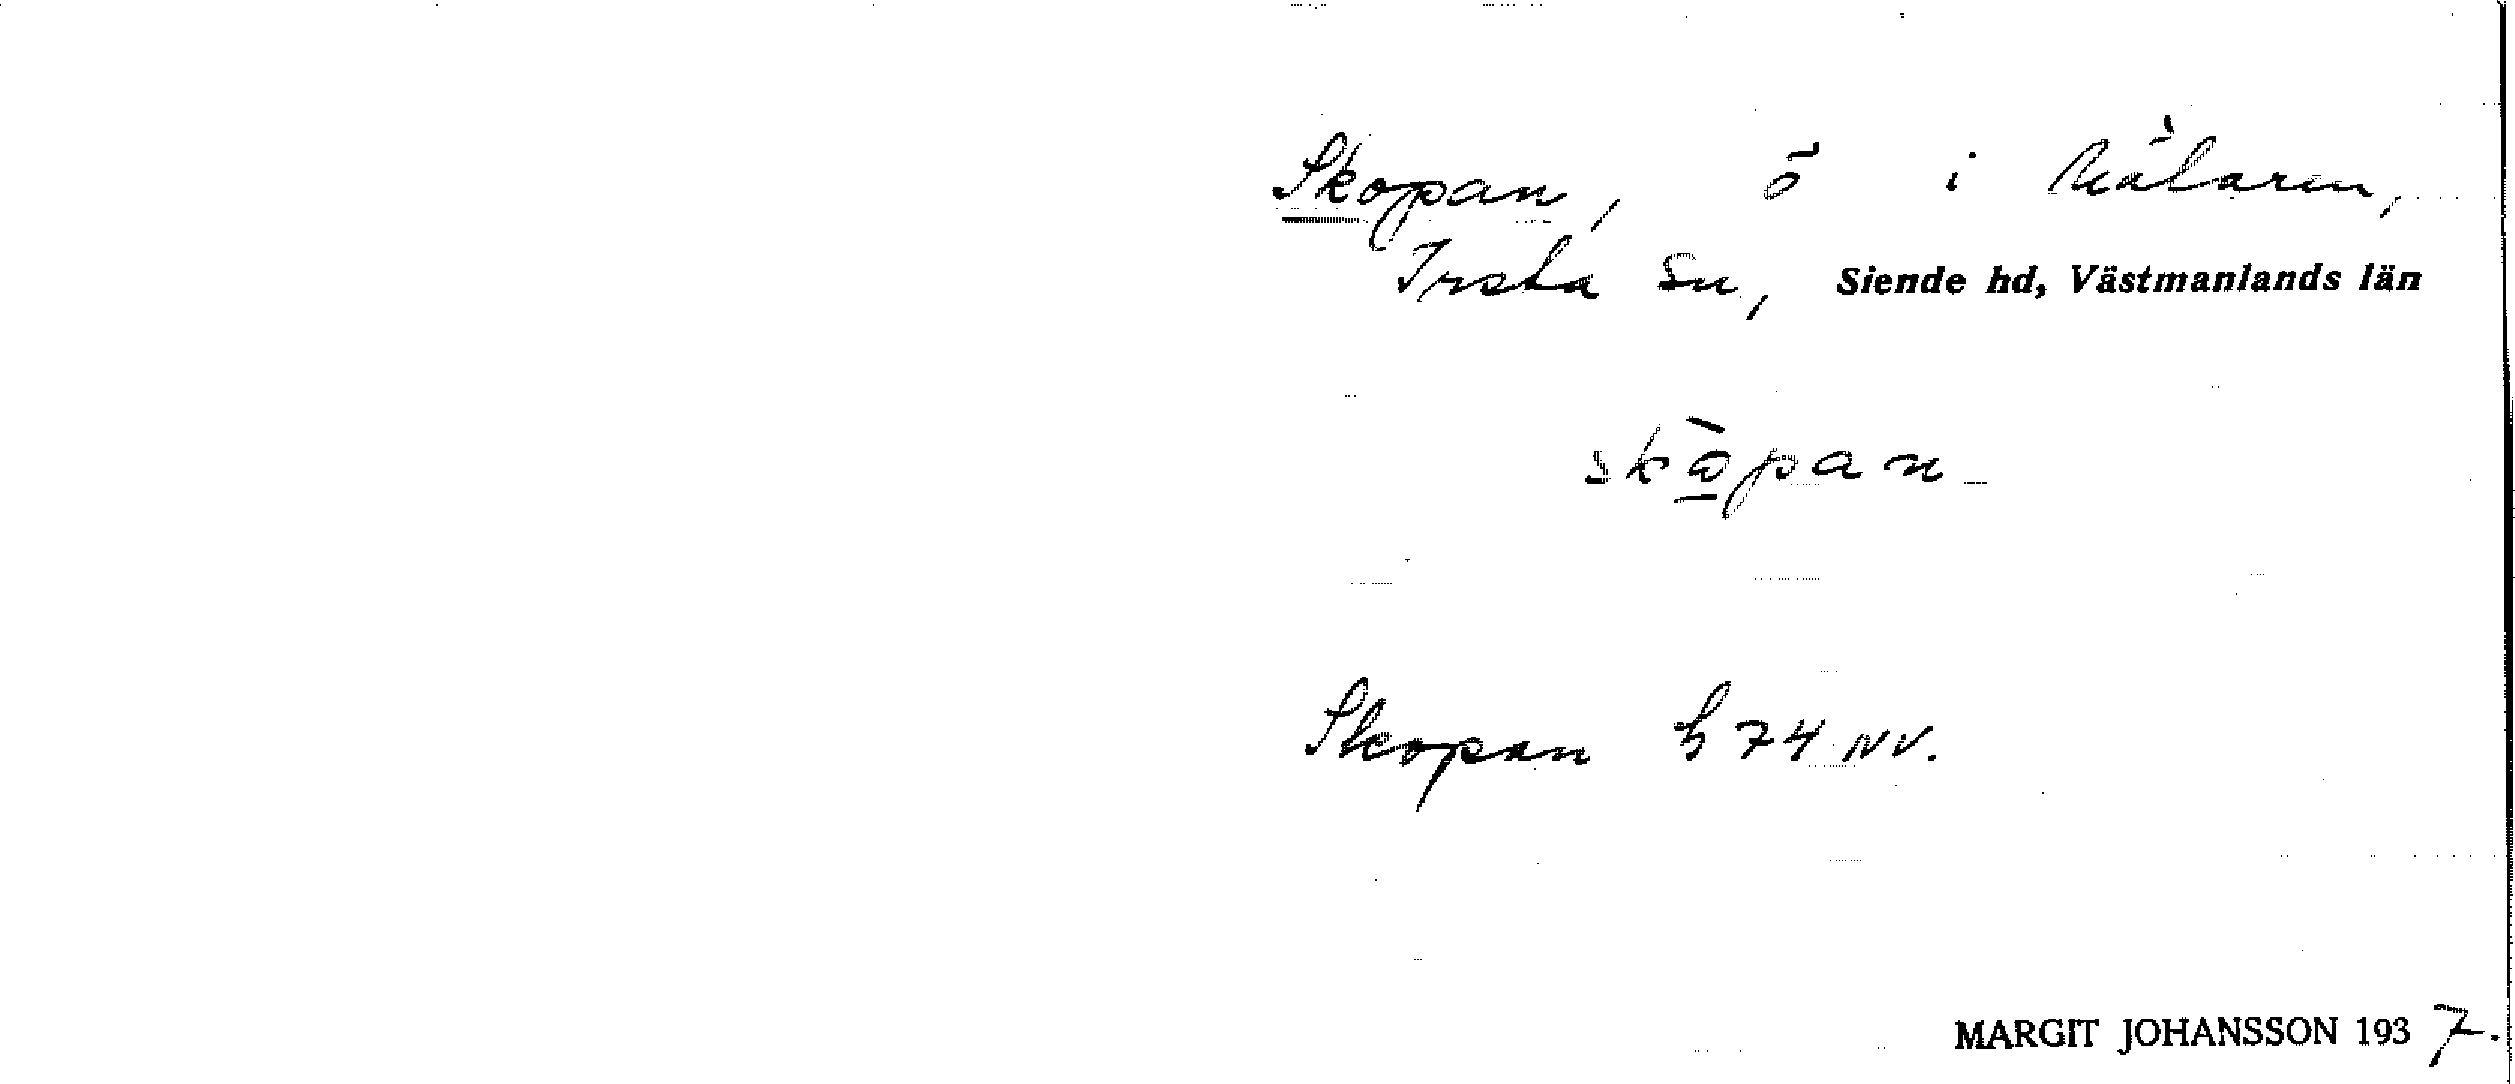 Skopan, ö i Mälaren,
Irsta sn, Siende hd, Västmanlands län
skò̱pan
Skopan h 74 NV.
MARGIT JOHANSSON 1937.